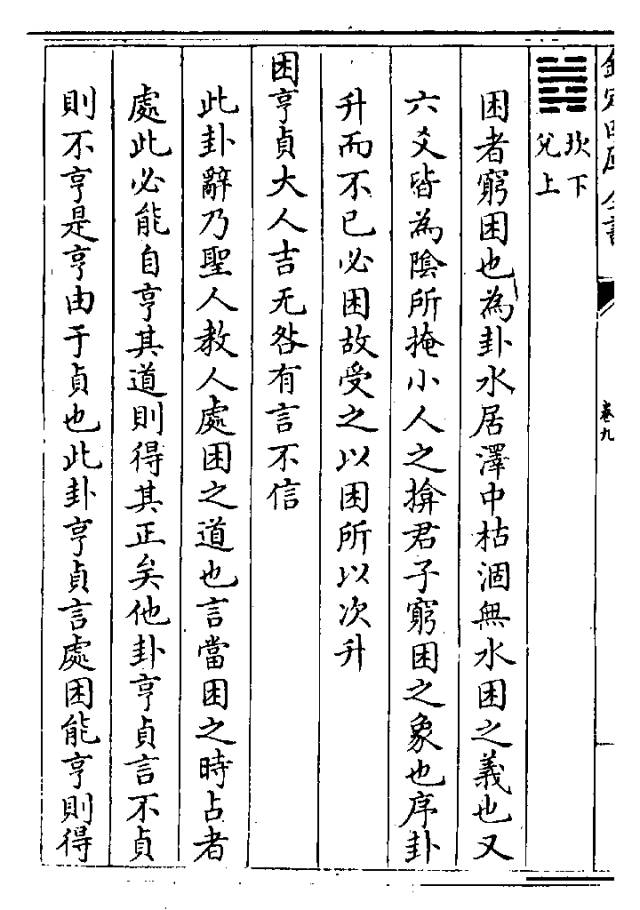 欽定四庫全書
卷九
坎下
兌上
困者窮困也為卦水居澤中枯涸無水困之義也又
六爻皆為陰所掩小人之揜君子窮困之象也序卦
升而不已必困故受之以困所以次升
困亨貞大人吉无咎有言不信
此卦辭乃聖人教人處困之道也言當困之時占者
處此必能自亨其道則得其正矣他卦亨貞言不貞
則不亨是亨由于貞也此卦亨貞言處困能亨則得